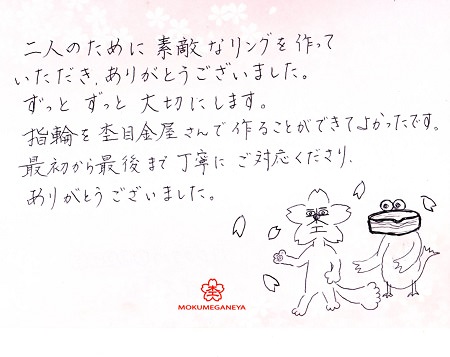 二人のために 素敵なリングを作って
いただき、ありがとうございました。
ずっと ずっと 大切にします。
指輪を 杢目金屋さんで 作ることができてよかったです。
最初から最後まで丁寧に ご対応くださり、
ありがとうございました。
MOKUMEGANEYA